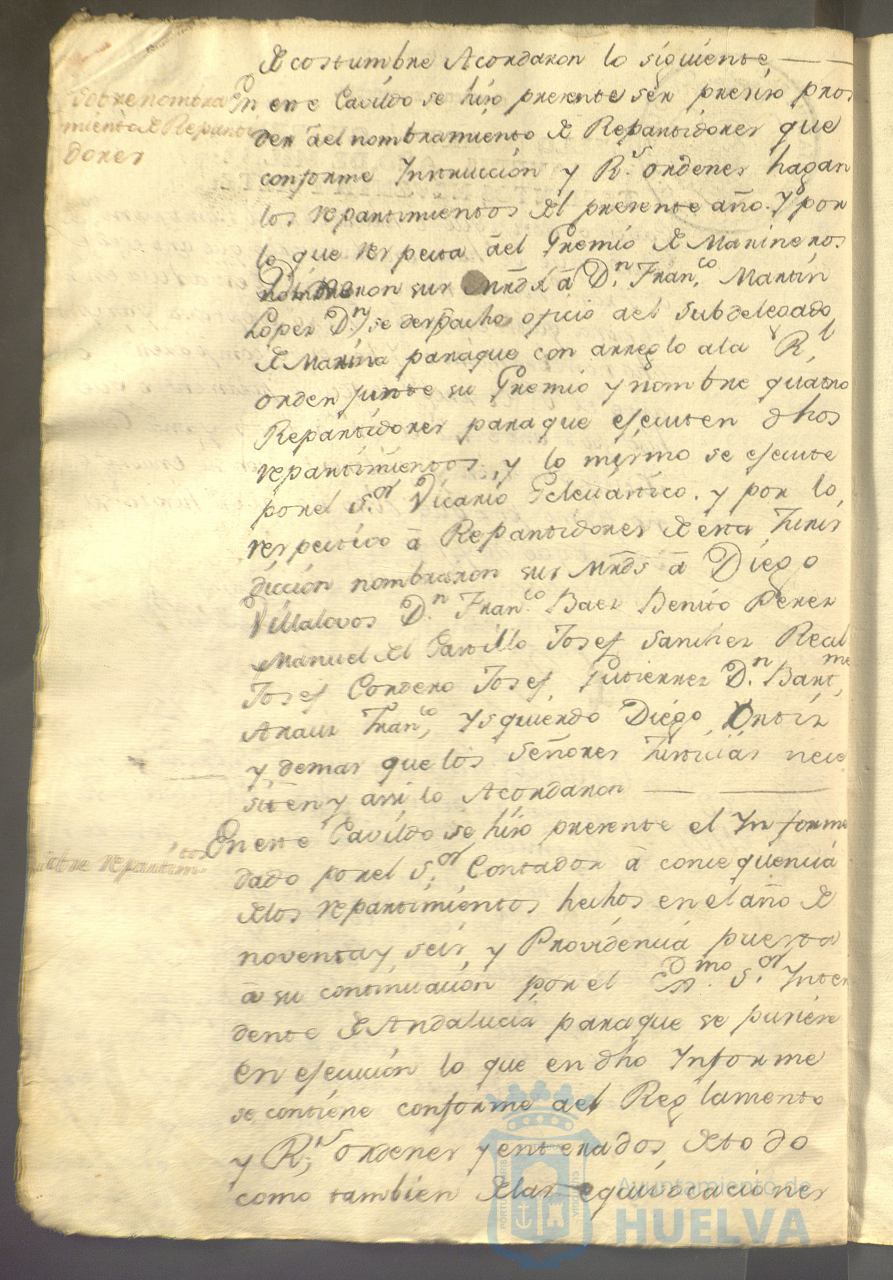 de costumbre Acordaron lo siguiente
Sobre nombra
miento de Reparti
dores
En este Cavildo se hiso presente ser presiso pros
der ael nombramiento de Repartidores que
conforme Instruccion y R.s ordenes hagan
los repartimientos del presente año. Y por
lo que respecta ael Gremio de Marineros
nombraron sus Mrds à D.n Fran.co Martin
Lopez D.n se despacho oficio ael Subdelegado
de Marina paraque con arreglo ala R.l
orden junte su Gremio y nombre quatro
Repartidores paraque executen dhos
repartimientos, y lo mismo se execute
por el S.or Vicario Eclesiastico. y por lo
respectivo à Repartidores de esta Juris
diccion nombraron sus Mrds à Diego
Villalovos D.n Fran.co Baez Benito Perez
Manuel del Castillo Josef Sanchez Real
Josef Cordero Josef Gutierrez D.n Bart.me
Arauz Fran.co Ysquierdo Diego Ortiz
y demas que los Señores Justicias nece
siten y assi lo Acordaron
sobre repartim.tos
En este Cavildo se hiso presente el Informe
dado por el S.or Contador à consequencia
delos repartimientos hechos en el año de
noventa y seis, y Providencia puesta
à su continuacion por el S.or Inten
dente de Andalucia paraque se pusiese
en execucion lo que en dho Informe
se contiene conforme ael Reglamento
y R.s ordenes y enterados de todo
como tambien delas equivocaciones
Ayuntamiento de
HUELVA